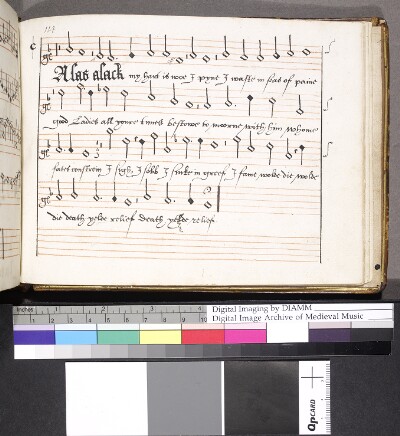 Alas alack my hart is woe I pyne I waste in seas of paine
good Ladies all youre times bestowe to moorne with him whome
fates constrein I sygh, I sobb I sinke in greef, I faint wolde die wolde
die death yelde relief death yelde relief
inches 1 2 3 4
1 2 3 4 5 6 7 8 9 10
Digital Imaging by DIAMM
Digital Image Archive of Medieval Music
QPCARD